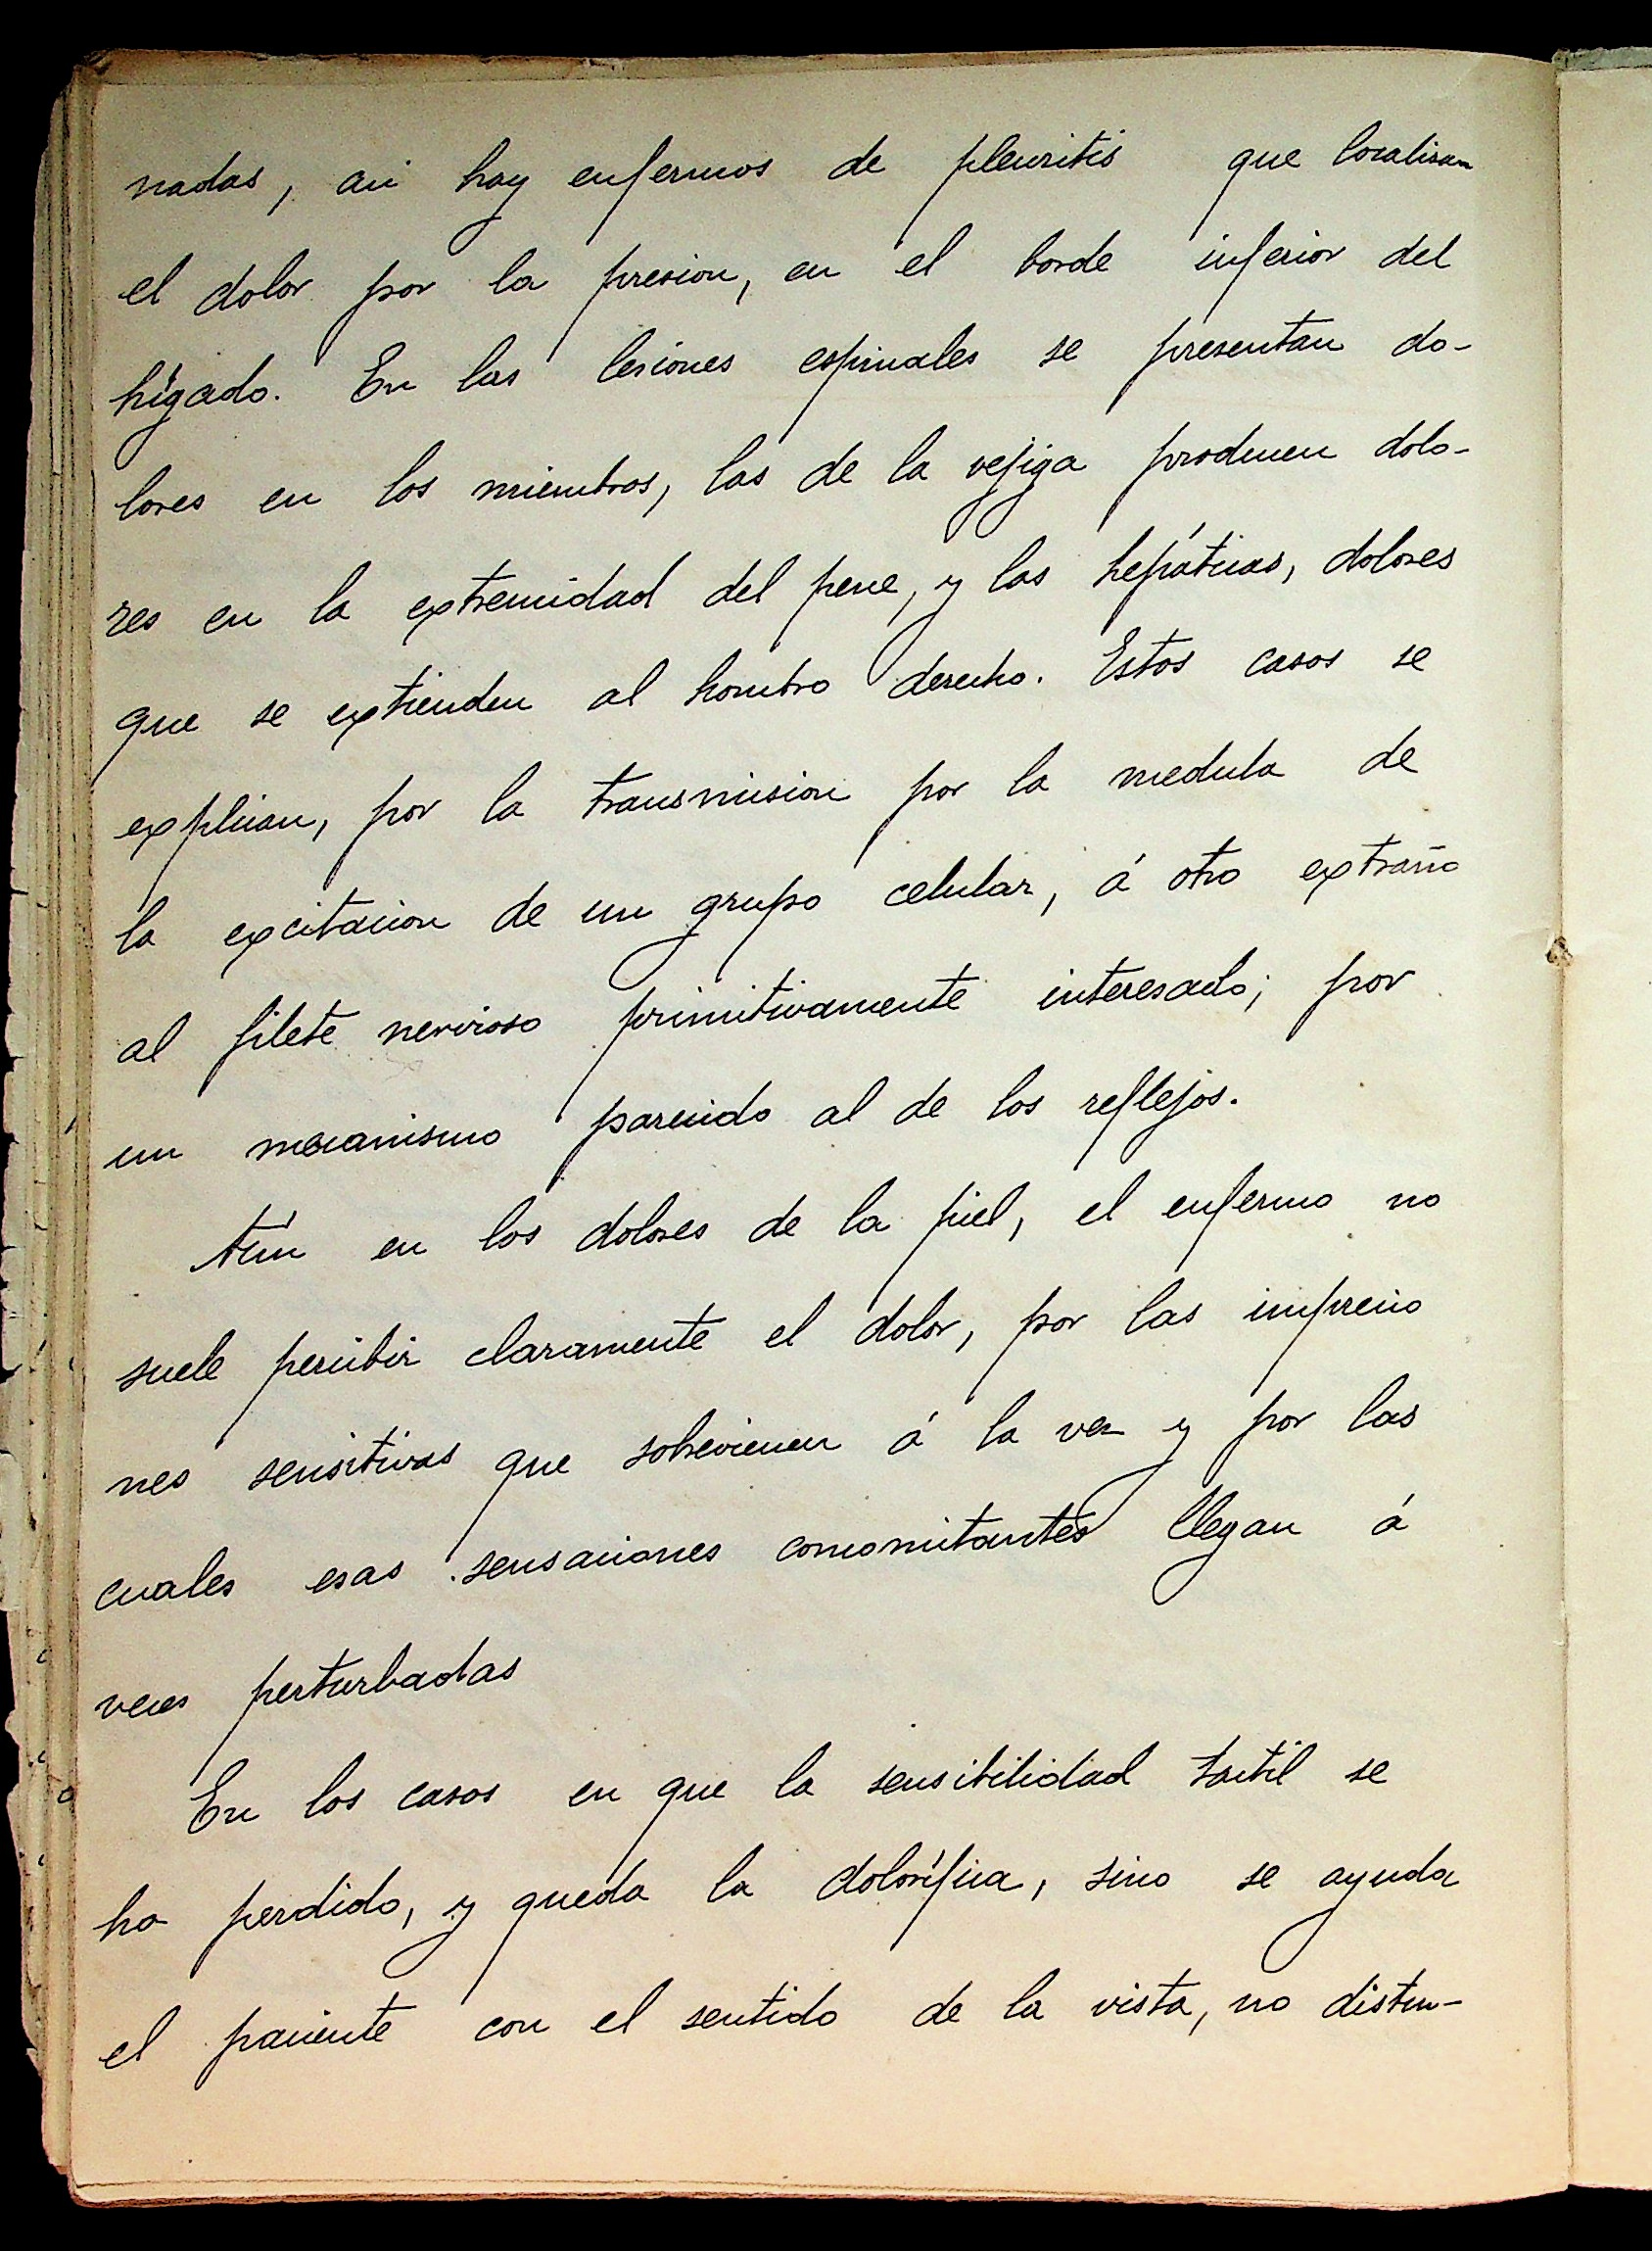 nadas, asi hay enfermos de pleuritis que localizan
el dolor por la presion, en el borde inferior del
hígado. En las lesiones espinales se presentan do-
lores en los miembros, las de la vejiga producen dolo-
res en la extremidad del pene, y las hepáticas, dolores
que se extienden al hombro derecho. Estos casos se
explican, por la transmision por la medula de
la excitacion de un grupo celular, á otro extraño
al filete nervioso primitivamente interesado; por
un mecanismo parecido al de los reflejos.
Aún en los dolores de la piel, el enfermo no
suele percibir claramente el dolor, por las impresio
nes sensitivas que sobrevienen á la vez y por las
cuales esas sensaciones concomitantes llegan á
veces perturbadas
En los casos en que la sensibilidad tactil se
ha perdido, y queda la dolorífica, sino se ayuda
el paciente con el sentido de la vista, no distin-